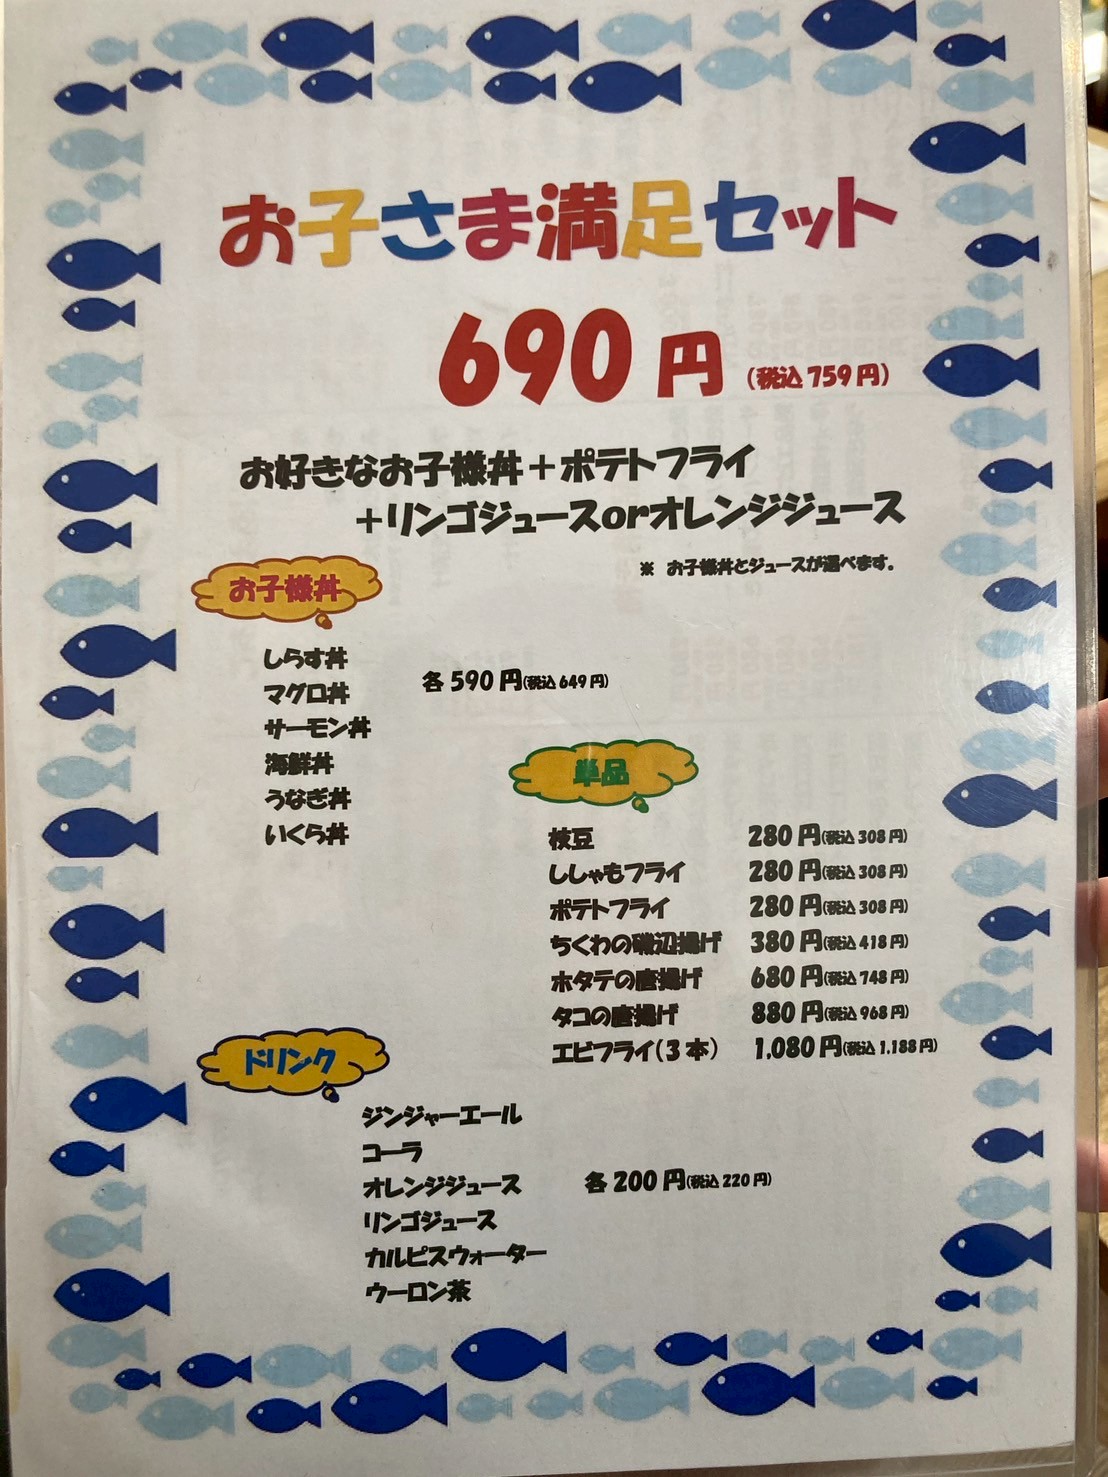 お子さま満足セット
690円(税込759円)
お好きなお子様丼+ポテトフライ
+リンゴジュースorオレンジジュース
※ お子様丼とジュースが選べます。
お子様丼
しらす丼
マグロ丼
サーモン丼
海鮮丼
うなぎ丼
いくら丼
各590円(税込649円)
単品
枝豆 280円(税込308円)
ししゃもフライ 280円(税込308円)
ポテトフライ 280円(税込308円)
ちくわの磯辺揚げ 380円(税込418円)
ホタテの唐揚げ 680円(税込748円)
タコの唐揚げ 880円(税込968円)
エビフライ(3本) 1,080円(税込1,188円)
ドリンク
ジンジャーエール
コーラ
オレンジジュース
リンゴジュース
カルピスウォーター
ウーロン茶
各200円(税込220円)